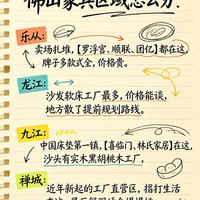 佛山家具区域怎么分?
乐从:
卖场扎堆,【罗浮宫、顺联、团亿】都在这,
牌子多款式全,价格贵。
龙江:
沙发软床工厂最多,价格能谈,
地方散了提前规划路线。
九江:
中国床垫第一镇,【喜临门、林氏家居】在这,
沙头有实木黑胡桃木工厂,
禅城:
近年新起的工厂直营区,指打生活